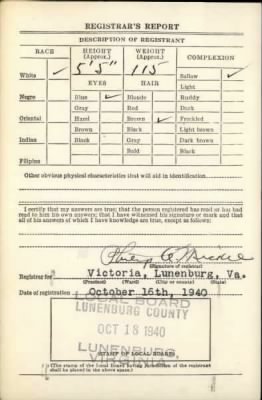 REGISTRAR'S REPORT
DESCRIPTION OF REGISTRANT
RACE HEIGHT (Approx.) WEIGHT (Approx.) COMPLEXION
White ✓ 5' 5" 115 Sallow ✓
EYES HAIR Light
Negro Blue ✓ Blonde Ruddy
Gray Red Dark
Oriental Hazel Brown ✓ Freckled
Brown Black Light brown
Indian Black Gray Dark brown
Bald Black
Filipino
Other obvious physical characteristics that will aid in identification
I certify that my answers are true; that the person registered has read or has had
read to him his own answers; that I have witnessed his signature or mark and that
all of his answers of which I have knowledge are true, except as follows:
(Signature of registrar)
Registrar for Victoria, Lunenburg, Va.
(Precinct) (Ward) (City or county) (State)
Date of registration October 16th, 1940
LOCAL BOARD
LUNENBURG COUNTY
OCT 18 1940
LUNENBURG
VIRGINIA
STAMP OF LOCAL BOARD
(The stamp of the Local Board having jurisdiction of the registrant
shall be placed in the above space.)